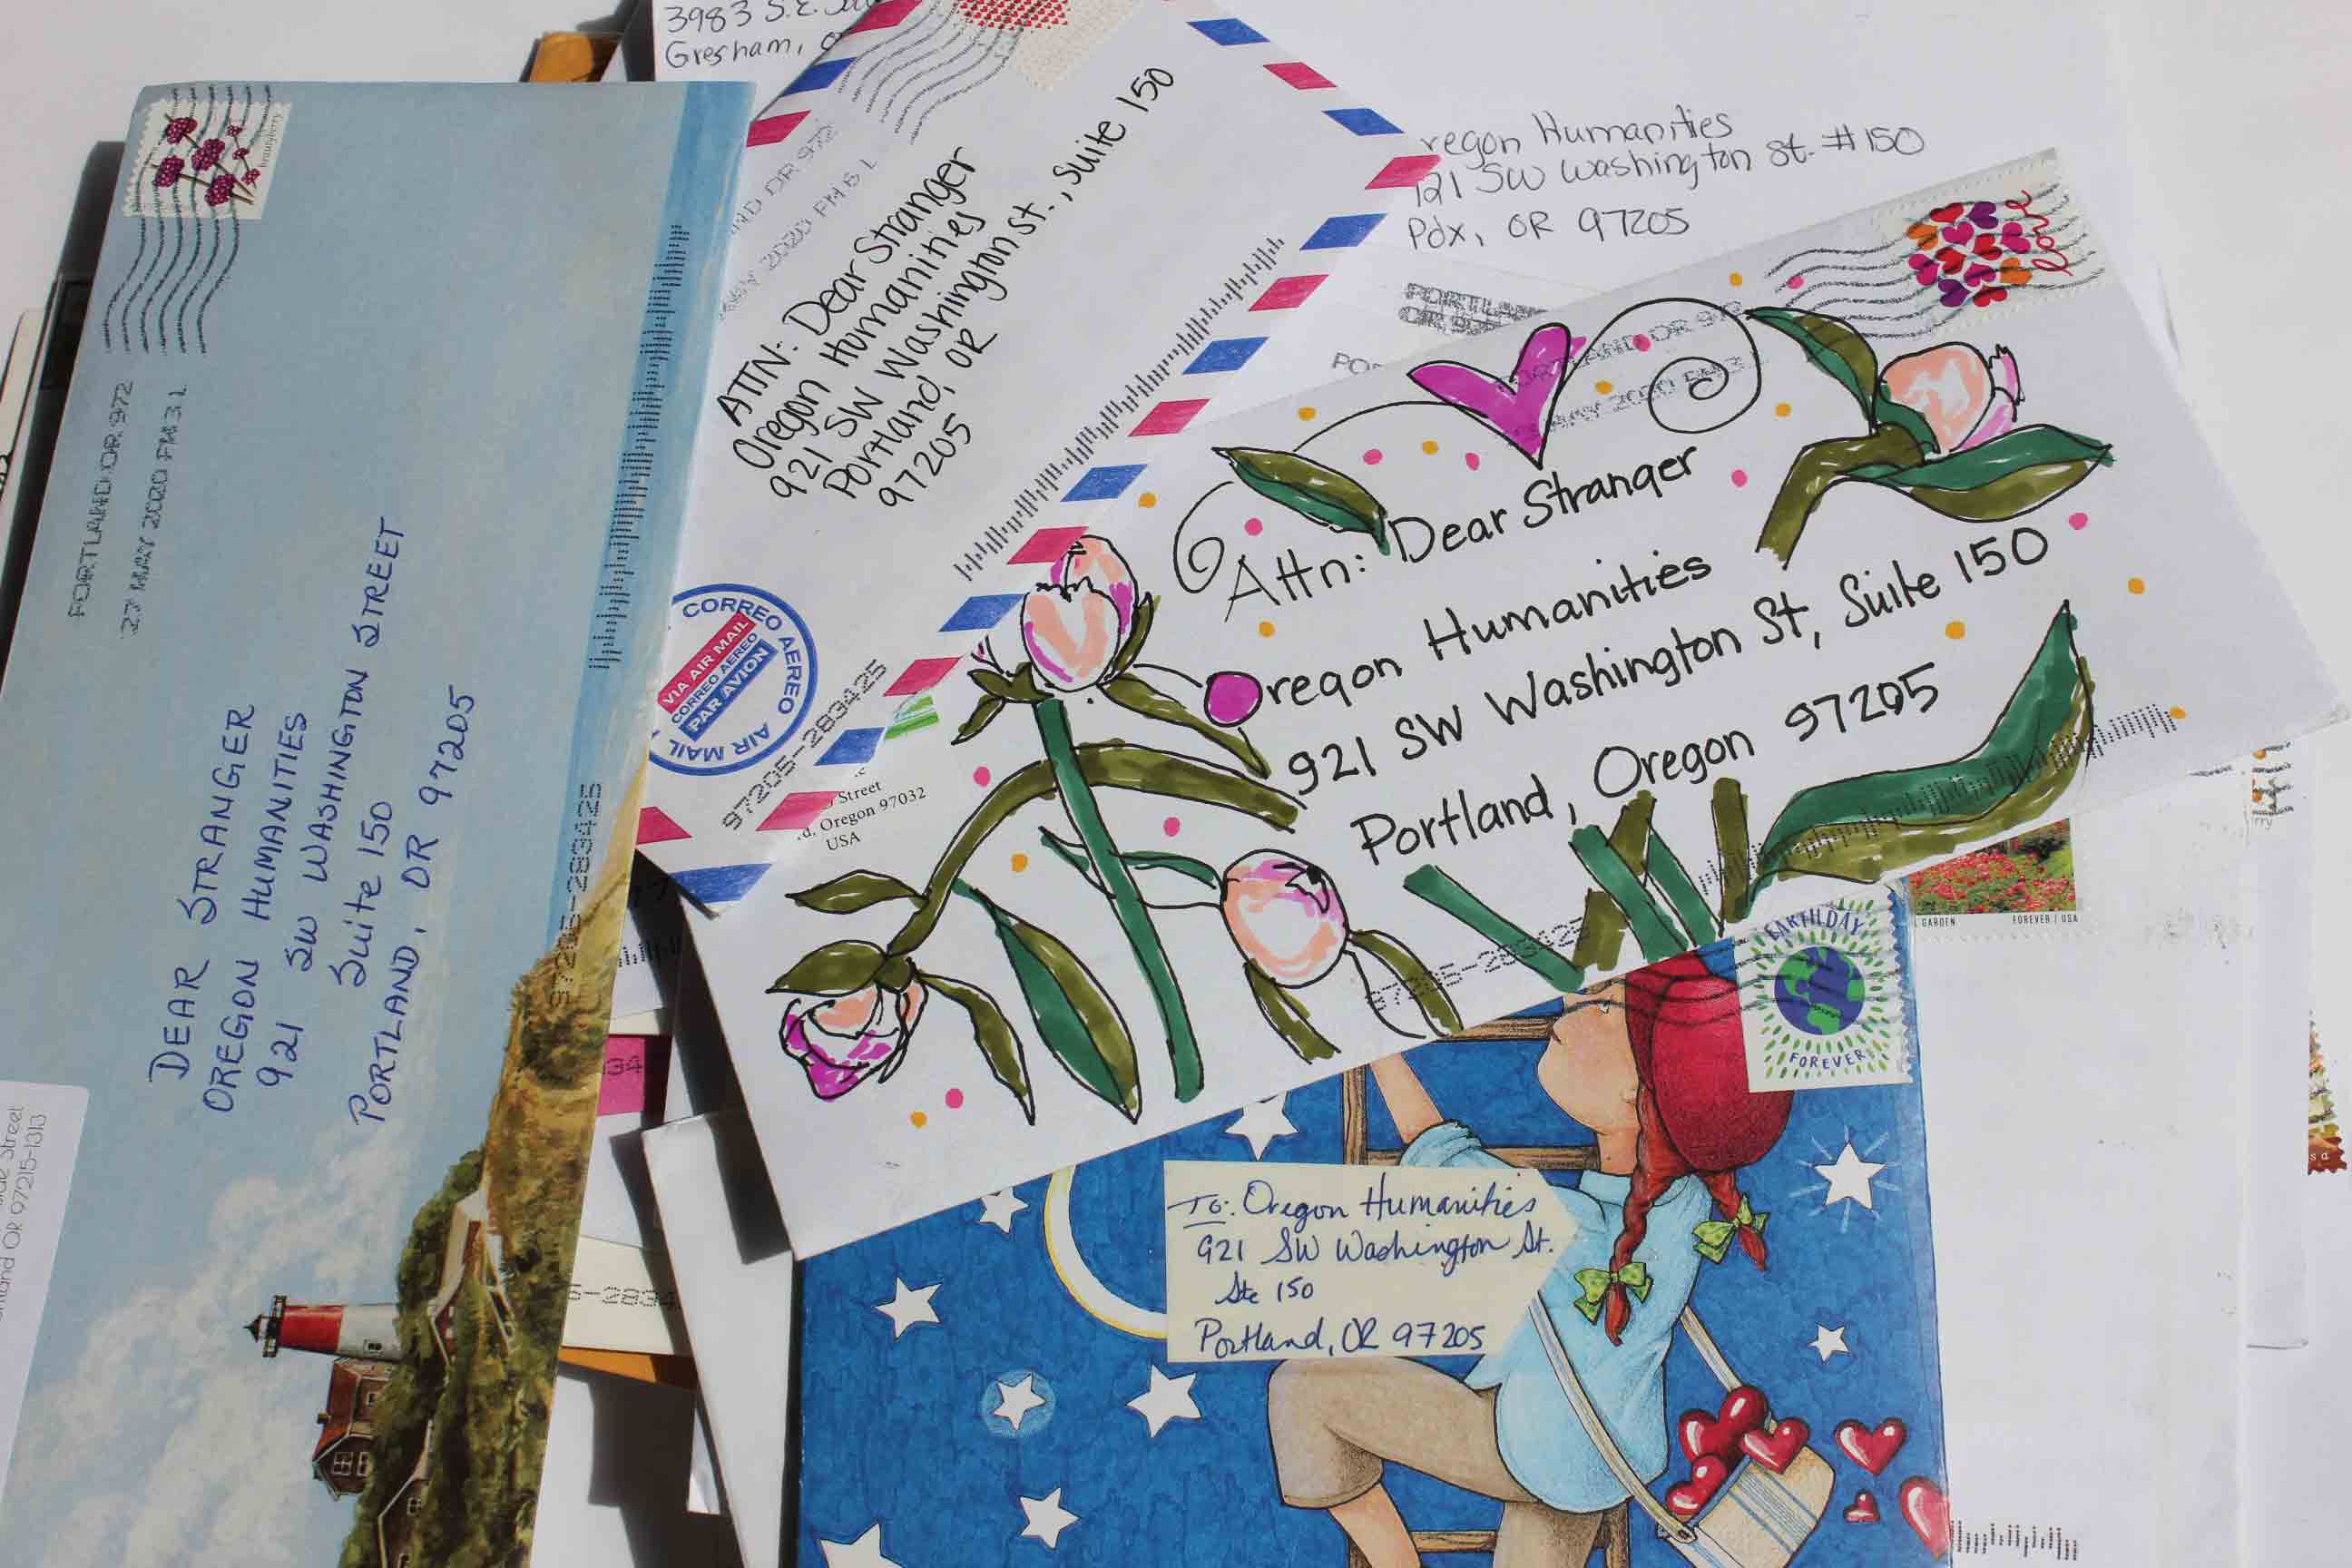 3983 S.E.
Gresham,
brautyberry
PORTLAND OR 972
27 MAY 2020 PM 3 L
DEAR STRANGER
OREGON HUMANITIES
921 SW WASHINGTON STREET
Suite 150
PORTLAND, OR 97205
97205-283425
Street
OR 97215-1313
OR 972
2020 PM 5 L
ATTN: Dear Stranger
Oregon Humanities
921 SW Washington St., Suite 150
Portland, OR
97205
CORREO AEREO
AIR MAIL
VIA AIR MAIL
CORREO AEREO
PAR AVION
97205-283425
Street
Oregon 97032
USA
regon Humanities
921 SW Washington St. #150
Pdx, OR 97205
PORTLAND
love
PORTLAND OR
MAY 2020
Attn: Dear Stranger
Oregon Humanities
921 SW Washington St, Suite 150
Portland, Oregon 97205
97205-283425
GARDEN FOREVER / USA
EARTH DAY
FOREVER
To: Oregon Humanities
921 SW Washington St.
Ste 150
Portland, OR 97205